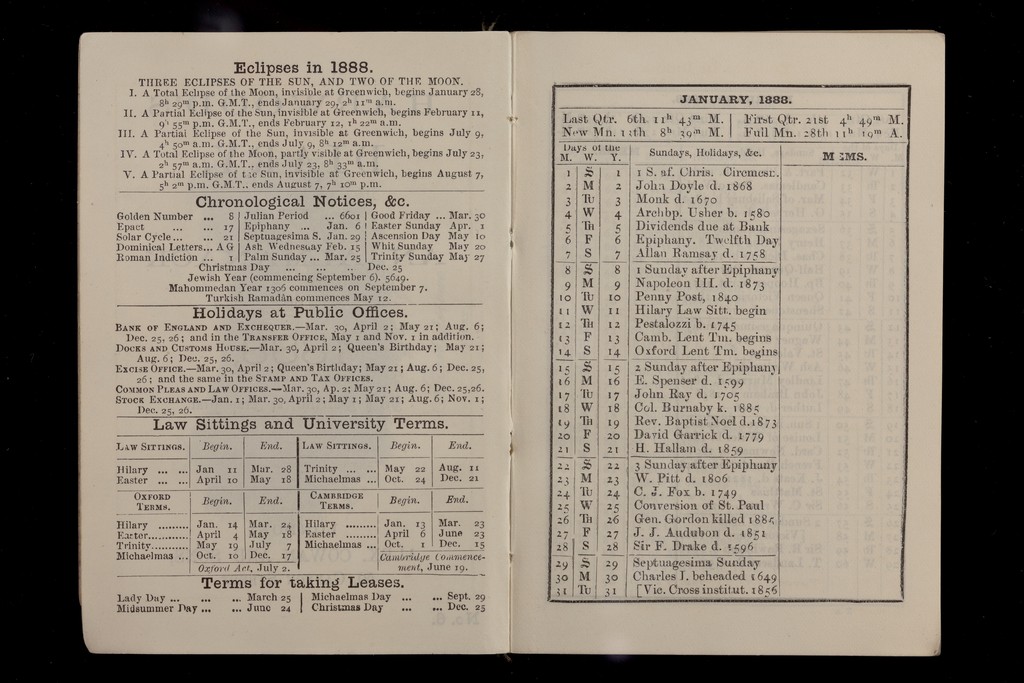 Eclipses in 1888.
THREE ECLIPSES OF THE SUN, AND TWO OF THE MOON.
I. A Total Eclipse of the Moon, invisible at Greenwich, begins January 28,
8h 29m p.m. G.M.T., ends January 29, 2h 11m a.m.
II. A Partial Eclipse of the Sun, invisible at Greenwich, begins February 11,
9h 55m p.m. G.M.T., ends February 12, 1h 22m a.m.
III. A Partial Eclipse of the Sun, invisible at Greenwich, begins July 9,
4h 50m a.m. G.M.T., ends July 9, 8h 12m a.m.
IV. A Total Eclipse of the Moon, partly visible at Greenwich, begins July 23,
2h 57m a.m. G.M.T., ends July 23, 8h 33m a.m.
V. A Partial Eclipse of the Sun, invisible at Greenwich, begins August 7,
5h 2m p.m. G.M.T., ends August 7, 7h 10m p.m.
Chronological Notices, &c.
Golden Number ... 8 | Julian Period ... 6601 | Good Friday ... Mar. 30
Epact ... ... 17 | Epiphany ... Jan. 6 | Easter Sunday Apr. 1
Solar Cycle ... ... 21 | Septuagesima S. Jan. 29 | Ascension Day May 10
Dominical Letters... A G | Ash Wednesday Feb. 15 | Whit Sunday May 20
Roman Indiction ... 1 | Palm Sunday ... Mar. 25 | Trinity Sunday May 27
Christmas Day ... ... .. Dec. 25
Jewish Year (commencing September 6), 5649.
Mahommedan Year 1306 commences on September 7.
Turkish Ramadân commences May 12.
Holidays at Public Offices.
BANK OF ENGLAND AND EXCHEQUER.—Mar. 30, April 2; May 21; Aug. 6;
Dec. 25, 26; and in the TRANSFER OFFICE, May 1 and Nov. 1 in addition.
DOCKS AND CUSTOMS HOUSE.—Mar. 30, April 2; Queen's Birthday; May 21;
Aug. 6; Dec. 25, 26.
EXCISE OFFICE.—Mar. 30, April 2; Queen's Birthday; May 21; Aug. 6; Dec. 25,
26; and the same in the STAMP AND TAX OFFICES.
COMMON PLEAS AND LAW OFFICES.—Mar. 30, Ap. 2; May 21; Aug. 6; Dec. 25, 26.
STOCK EXCHANGE.—Jan. 1; Mar. 30, April 2; May 1; May 21; Aug. 6; Nov. 1;
Dec. 25, 26.
Law Sittings and University Terms.
LAW SITTINGS. | Begin. | End. | LAW SITTINGS. | Begin. | End.
Hilary ... ... | Jan 11 | Mar. 28 | Trinity ... ... | May 22 | Aug. 11
Easter ... ... | April 10 | May 18 | Michaelmas ... | Oct. 24 | Dec. 21
OXFORD TERMS. | Begin. | End. | CAMBRIDGE TERMS. | Begin. | End.
Hilary .......... | Jan. 14 | Mar. 24 | Hilary ......... | Jan. 13 | Mar. 23
Easter........... | April 4 | May 18 | Easter ......... | April 6 | June 23
Trinity........... | May 19 | July 7 | Michaelmas ... | Oct. 1 | Dec. 15
Michaelmas ... | Oct. 10 | Dec. 17 | Cambridge Commence-
Oxford Act, July 2. | ment, June 19.
Terms for taking Leases.
Lady Day ... ... ... March 25 | Michaelmas Day ... ... Sept. 29
Midsummer Day ... ... June 24 | Christmas Day ... ... Dec. 25
JANUARY, 1888.
Last Qtr. 6th. 11h 43m M. | First Qtr. 21st 4h 49m M.
New Mn. 13th 8h 39m M. | Full Mn. 28th 11h 19m A.
Days of the
M. W. Y. | Sundays, Holidays, &c. | MEMS.
1 S 1 1 S. af. Chris. Circmcsn.
2 M 2 John Doyle d. 1868
3 Tu 3 Monk d. 1670
4 W 4 Archbp. Usher b. 1580
5 Th 5 Dividends due at Bank
6 F 6 Epiphany. Twelfth Day
7 S 7 Allan Ramsay d. 1758
8 S 8 1 Sunday after Epiphany
9 M 9 Napoleon III. d. 1873
10 Tu 10 Penny Post, 1840
11 W 11 Hilary Law Sitt. begin
12 Th 12 Pestalozzi b. 1745
13 F 13 Camb. Lent Tm. begins
14 S 14 Oxford Lent Tm. begins
15 S 15 2 Sunday after Epiphany
16 M 16 E. Spenser d. 1599
17 Tu 17 John Ray d. 1705
18 W 18 Col. Burnaby k. 1885
19 Th 19 Rev. Baptist Noel d. 1873
20 F 20 David Garrick d. 1779
21 S 21 H. Hallam d. 1859
22 S 22 3 Sunday after Epiphany
23 M 23 W. Pitt d. 1806
24 Tu 24 C. J. Fox b. 1749
25 W 25 Conversion of St. Paul
26 Th 26 Gen. Gordon killed 1885
27 F 27 J. J. Audubon d. 1851
28 S 28 Sir F. Drake d. 1596
29 S 29 Septuagesima Sunday
30 M 30 Charles I. beheaded 1649
31 Tu 31 [Vic. Cross institut. 1856